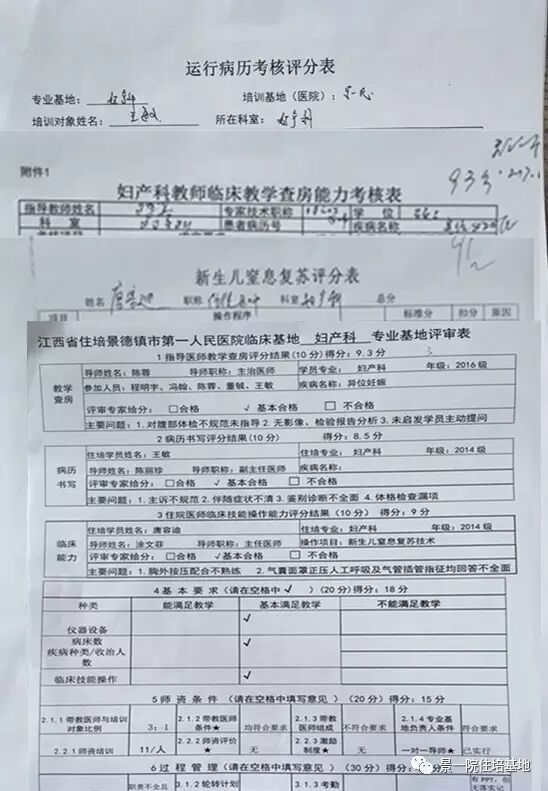 运行病历考核评分表
专业基地： 妇产科 培训基地（医院）：
培训对象姓名： 王敏 所在科室： 妇产科
附件1
妇产科教师临床教学查房能力考核表
指导教师姓名 专家技术职称 学 位
科 室 患者病历号 疾病名称
新生儿窒息复苏评分表
姓名 唐容迪 职称 科室 妇产科 总分
项目 操作程序 标准分 扣分 原因
江西省住培景德镇市第一人民医院临床基地 妇产科 专业基地评审表
1 指导医师教学查房评分结果(10 分) 得分：9.3 分
教学查房
导师姓名：陈蓉 导师职称：主治医师 学员专业： 妇产科 年级：2016级
参加人员：程明宇、冯翰、陈蓉、董铖、王敏 疾病名称：异位妊娠
评审专家给分： □合格 √ 基本合格 □ 不合格
主要问题：1.对腹部体检不规范未指导 2.无影像、检验报告分析 3.未启发学员主动提问
2 病历书写评分结果(10 分) 得分：8.5 分
病历书写
住培学员姓名：王敏 住培专业：妇产科 年级：2014级
导师姓名：陈丽珍 导师职称：副主任医师 疾病名称：
评审专家给分： □合格 √ 基本合格 □ 不合格
主要问题：1.主诉不规范 2.伴随症状不清 3.鉴别诊断不全面 4.体格检查漏项
3 住院医师临床技能操作能力评分结果（10 分） 得分：9 分
临床能力
住培学员姓名：唐容迪 住培专业：妇产科 年级：2014级
导师姓名：涂文菲 导师职称：主任医师 操作项目：新生儿窒息复苏技术
评审专家给分： □合格 √基本合格 □ 不合格
主要问题：1.胸外按压配合不熟练 2.气囊面罩正压人工呼吸及气管插管指征均回答不全面
4 基 本 要 求（请在空格中 √ ）（20 分）得分：18 分
种类 能满足教学 基本满足教学 不能满足教学
仪器设备 √
病床数 √
疾病种类/收治人数
临床技能操作 √
5 师 资 条 件 （请在空格中填写意见）（20 分）得分：15 分
2.1.1 带教医师与培训对象比例 3：1 2.1.2 带教医师条件★ 均符合要求 2.1.3 带教医师组成 不符合要求 2.1.4 专业基地负责人条件 符合要求
2.2.1 师资培训 11/人 2.2.2 师资评价★ 无 2.2.3 激励制度★ 无 一对一导师★ 已实行
6 过 程 管 理（请在空格中填写意见）（30 分）得分：
职责不全且 3.1.2 轮转计划 3.1.3 考勤 有 PPT，但
景一院住培基地